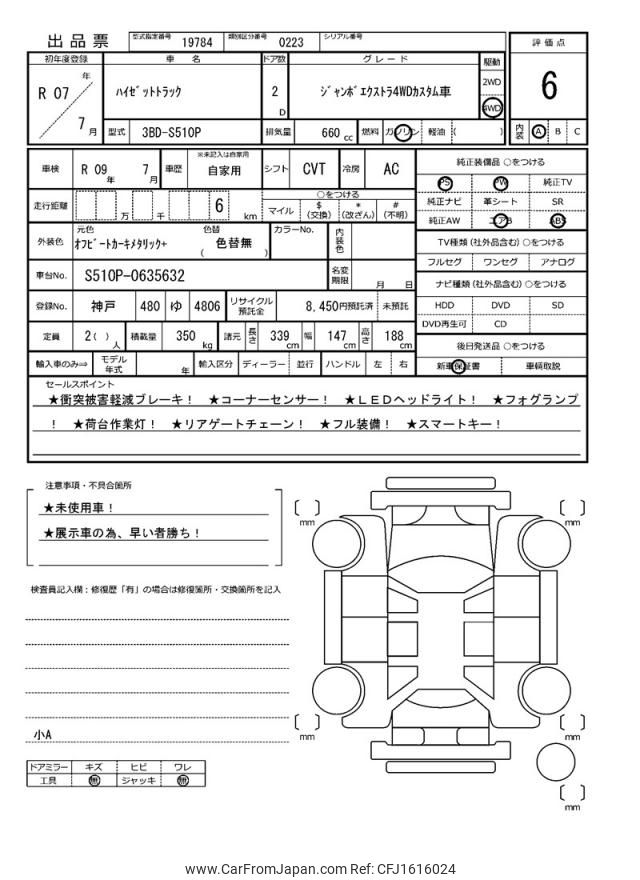 出品票 型式指定番号 19784 類別区分番号 0223 シリアル番号
評価点
6
内装 A B C
初年度登録 車名 ドア数 グレード 駆動
R 07 年 7 月
ﾊｲｾﾞｯﾄﾄﾗｯｸ
2 D
ｼﾞｬﾝﾎﾞｴｸｽﾄﾗ4WDカスタム車
2WD
4WD
型式 3BD-S510P 排気量 660 cc 燃料 ガソリン 軽油 ( )
車検 R 09 年 7 月 車歴 ※未記入は自家用 自家用 シフト CVT 冷房 AC
走行距離 万 千 6 km
○をつける
マイル $ (交換) * (改ざん) # (不明)
外装色 元色 ｵﾌﾋﾞｰﾄｶｰｷﾒﾀﾘｯｸ+ 色替 ( 色替無 ) カラーNo. 内装色
車台No. S510P-0635632 名変期限 月 日
登録No. 神戸 480 ゆ 4806 リサイクル預託金 8,450円預託済 未預託
定員 2( ) 人 積載量 350 kg 諸元 長さ 339 cm 幅 147 cm 高さ 188 cm
輸入車のみ⇒ モデル年式 年 輸入区分 ディーラー 並行 ハンドル 左 右
純正装備品 ○をつける
PS PW 純正TV
純正ナビ 革シート SR
純正AW エアB ABS
TV種類 (社外品含む) ○をつける
フルセグ ワンセグ アナログ
ナビ種類 (社外品含む) ○をつける
HDD DVD SD
DVD再生可 CD
後日発送品 ○をつける
新車保証書 車輌取説
セールスポイント
★衝突被害軽減ブレーキ！ ★コーナーセンサー！ ★ＬＥＤヘッドライト！ ★フォグランプ
！ ★荷台作業灯！ ★リアゲートチェーン！ ★フル装備！ ★スマートキー！
注意事項・不具合箇所
★未使用車！
★展示車の為、早い者勝ち！
検査員記入欄：修復歴「有」の場合は修復箇所・交換箇所を記入
小A
ドアミラー キズ ヒビ ワレ
工具 無 ジャッキ 無
mm
mm
mm
mm
mm
www.CarFromJapan.com Ref: CFJ1616024